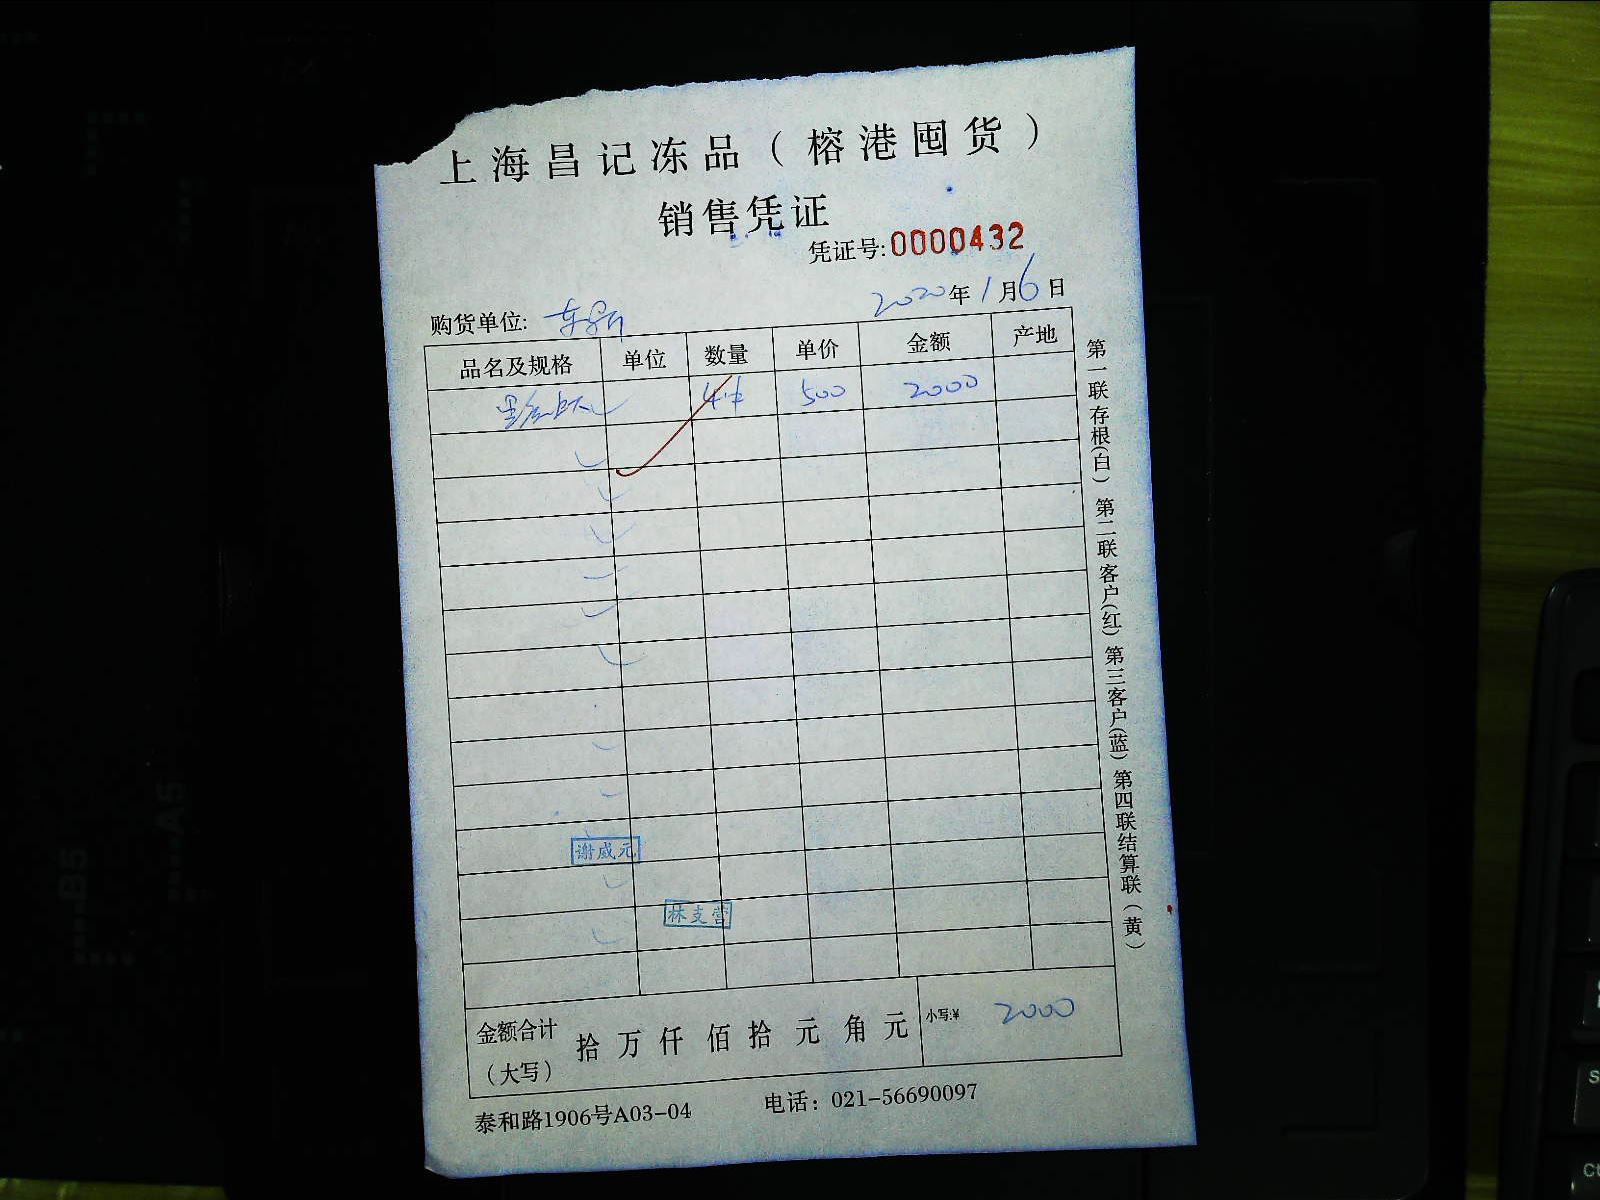 上海昌记冻品（榕港囤货）
销售凭证
凭证号:0000432
2020年1月6日
购货单位:
品名及规格 单位 数量 单价 金额 产地
4件 500 2000
谢威元
林支营
金额合计（大写） 拾 万 仟 佰 拾 元 角 元 小写:¥ 2000
泰和路1906号A03-04 电话：021-56690097
第一联存根(白) 第二联客户(红) 第三客户(蓝) 第四联结算联(黄)